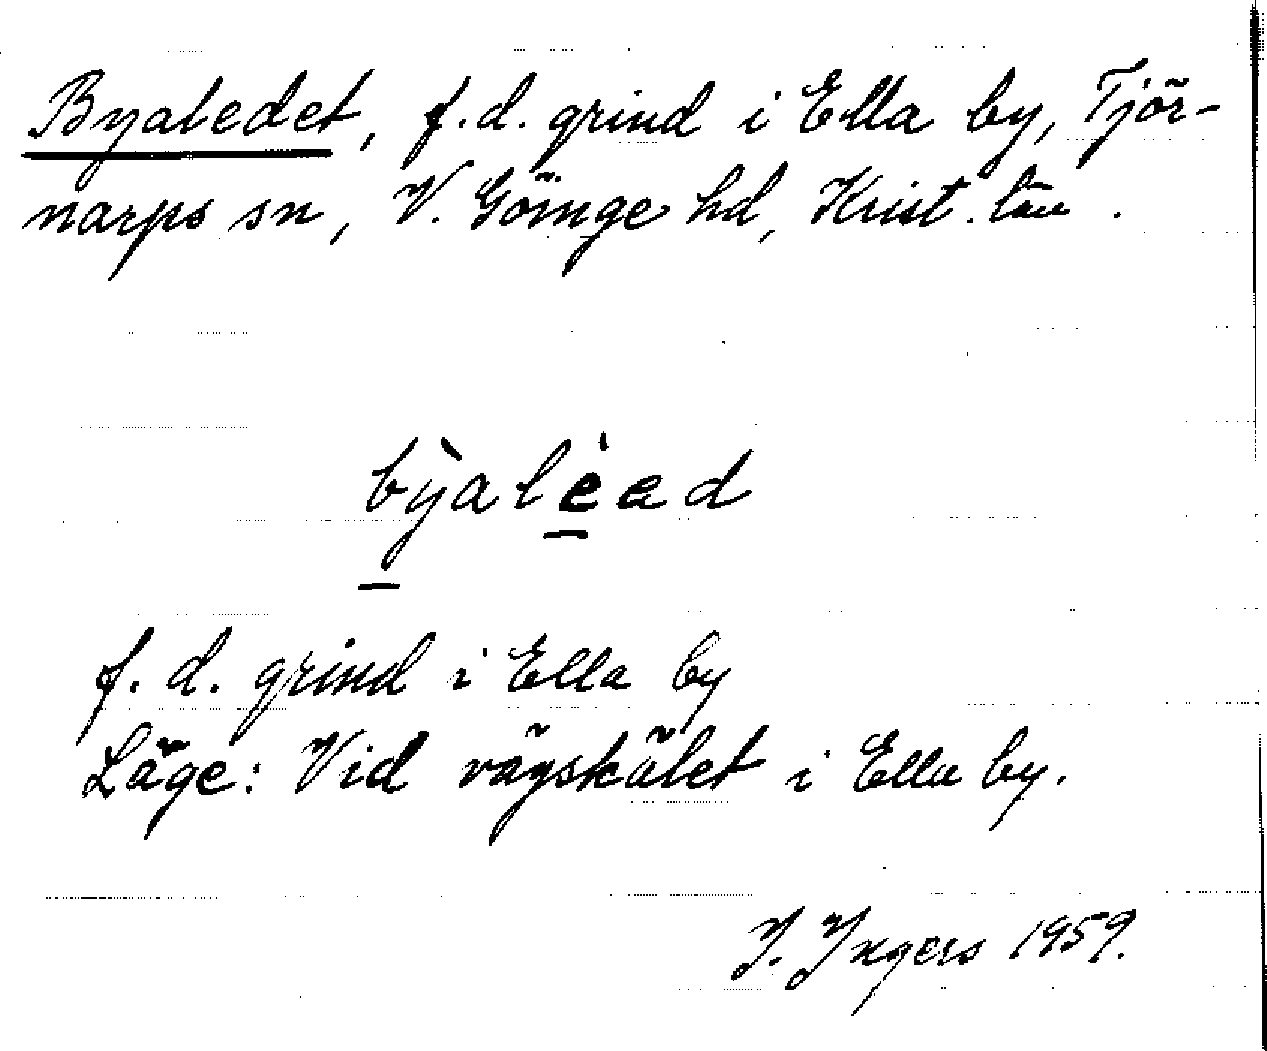 Byaledet, f.d. grind i Ella by, Tjör-
narps sn, V. Göinge hd, Krist. län.
bỳalèad
f.d. grind i Ella by
Läge: Vid vägskälet i Ella by.
I. Ingers 1959.